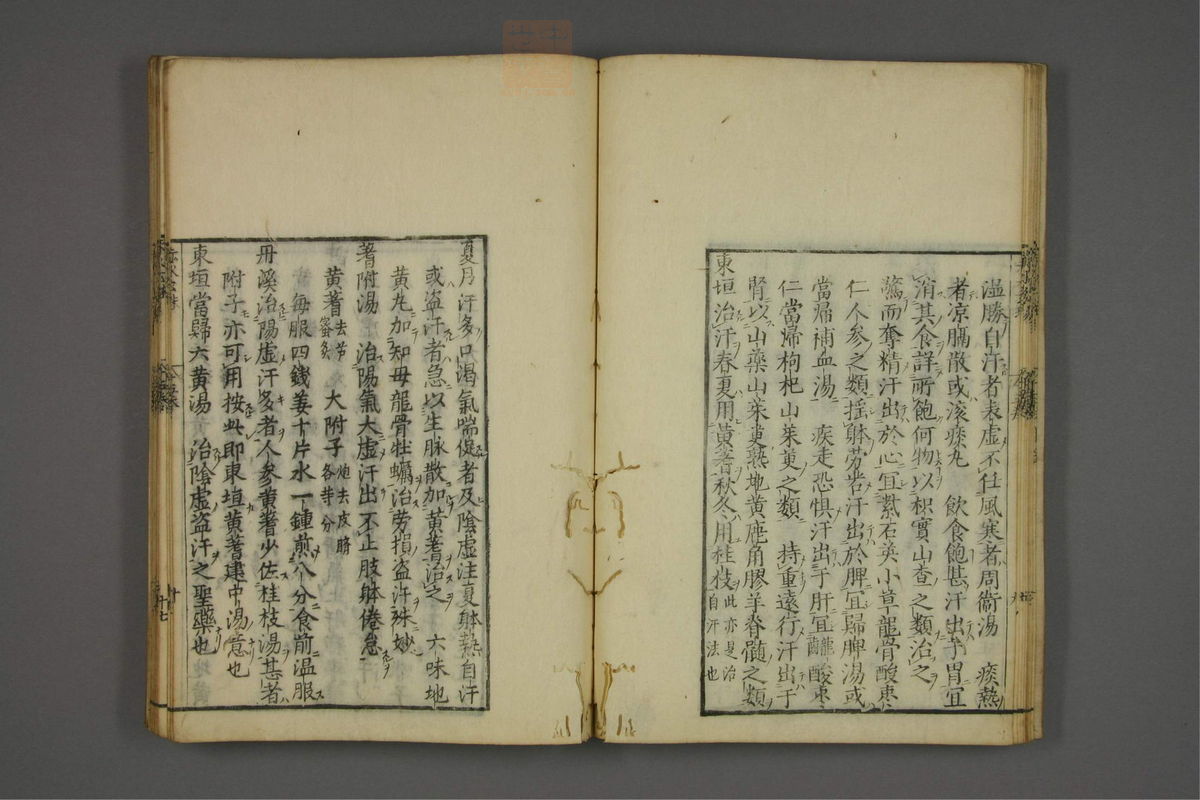 湿勝自汗者表虚不任風寒者周衛湯　痰熱
者凉膈散或滚痰丸　飲食飽甚汗出于胃宜
消其食詳所飽何物以枳實山查之類治之
驚而奪精汗出於心宜紫石英小草龍骨酸枣
仁人参之類揺躰劳苦汗出於脾宜歸脾湯或
當帰補血湯　疾走恐惧汗出于肝宜酸枣
仁當帰枸杞山茱萸之類　持重遠行汗出于
腎以山藥山茱萸熟地黄鹿角膠羊脊髓之類
東垣治汗春夏用黄蓍秋冬用桂枝此亦是治自汗法也
夏月汗多口渴氣喘促者及陰虚注夏躰熱自汗
或盗汗者急以生脉散加黄蓍治之　六味地
黄丸加知母龍骨牡蠣治劳損盗汗殊妙
蓍附湯　治陽氣大虚汗出不止肢躰倦怠
黄蓍去芦蜜炙　大附子炮去皮臍各等分
每服四錢姜十片水一鍾煎八分食前温服
丹溪治陽虚汗多者人参黄蓍少佐桂枝湯甚者
附子亦可用按此即東垣黄蓍建中湯意也
東垣當歸六黄湯　治陰虚盗汗之聖藥也
十七